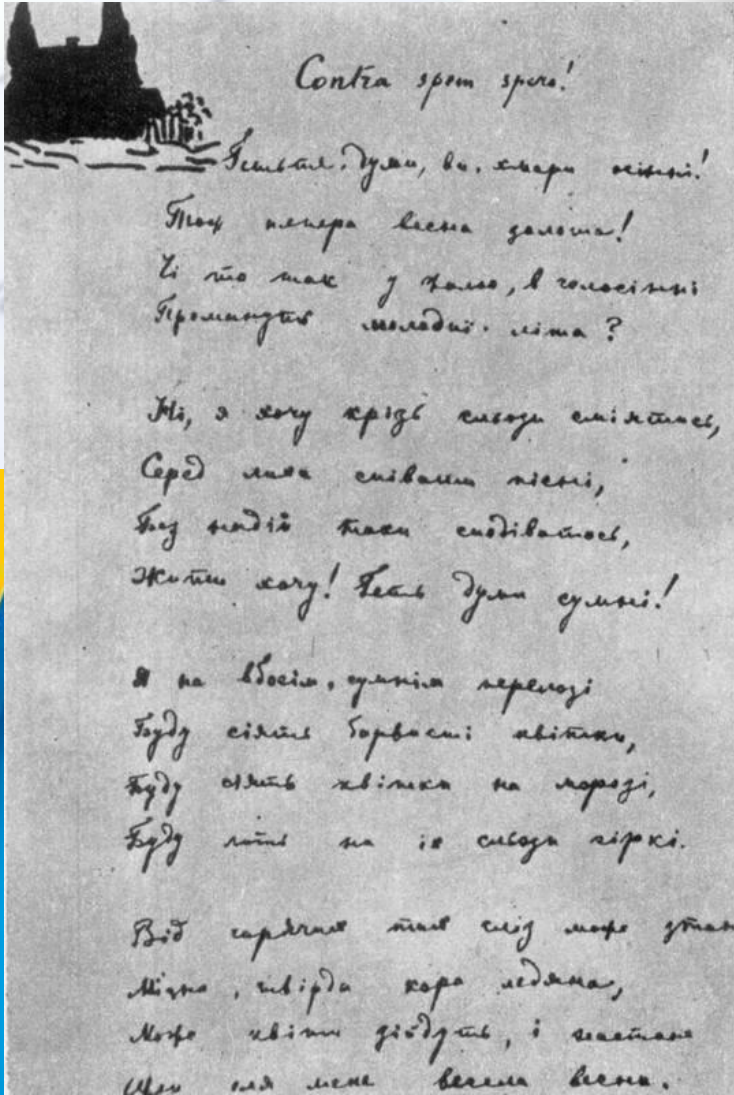 Contra spem spero!
Гетьте, думи, ви, хмари осінні!
Тож тепера весна золота!
Чи то так у жалю, в голосінні
Проминуть молодиї літа?
Ні, я хочу крізь сльози сміятись,
Серед лиха співати пісні,
Без надії таки сподіватись,
Жити хочу! Геть думи сумні!
Я на вбогім, сумнім перелозі
Буду сіять барвисті квітки,
Буду сіять квітки на морозі,
Буду лить на їх сльози гіркі.
Від гарячих тих сліз може зтане
Міцна, твірда кора ледяна,
Може квіти зійдуть, і настане
Ще для мене весела весна.